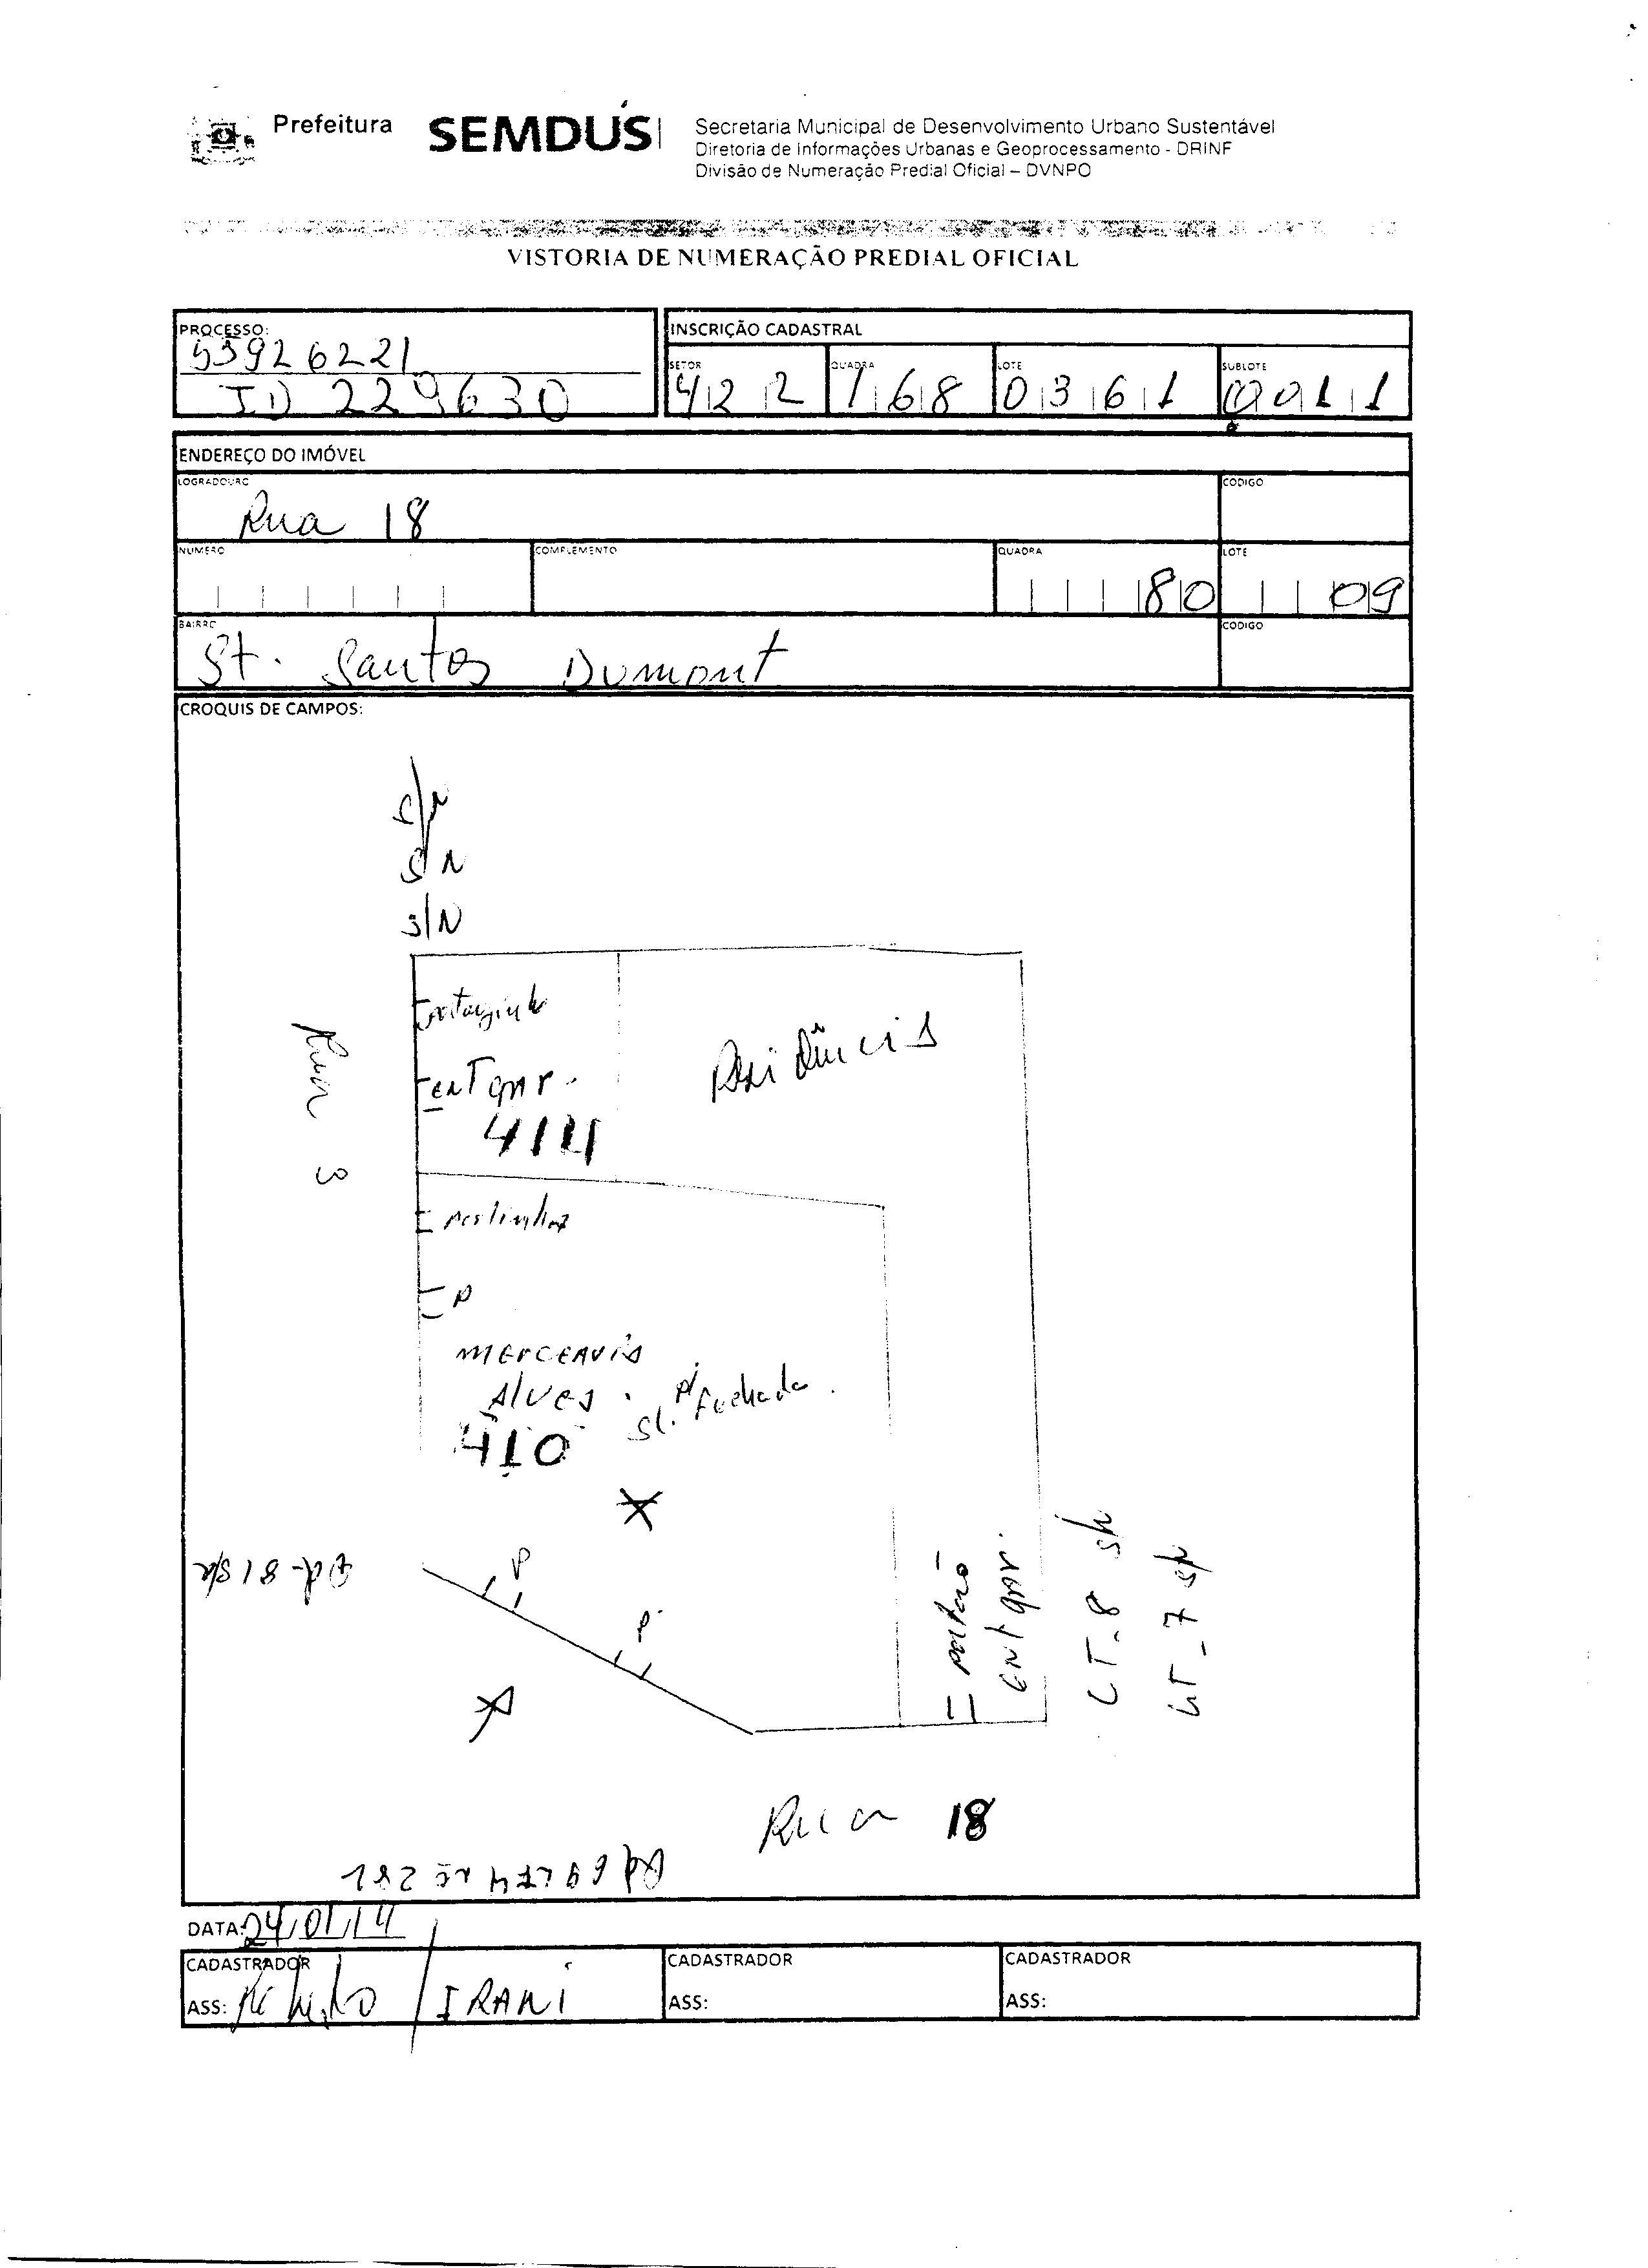 Prefeitura SEMDUS
Secretaria Municipal de Desenvolvimento Urbano Sustentável
Diretoria de Informações Urbanas e Geoprocessamento - DRINF
Divisão de Numeração Predial Oficial – DVNPO
VISTORIA DE NUMERAÇÃO PREDIAL OFICIAL
PROCESSO:
53926221
ID 229630
INSCRIÇÃO CADASTRAL
SETOR QUADRA LOTE SUBLOTE
422 168 0361 0011
ENDEREÇO DO IMÓVEL
LOGRADOURO CODIGO
Rua 18
NUMERO COMPLEMENTO QUADRA LOTE
80 09
BAIRRO CODIGO
St. Santos Dumont
CROQUIS DE CAMPOS:
S/N
S/N
S/N
ent gnr.
Residência
414
Rua 3
portinhoz
P
mercearia
Alves. p/
410 sl. Fechada.
Qd-81 S/N
P
P
portão
ent gnr.
LT-8 S/N
LT-7 S/N
Rua 18
DATA: 24/01/14
CADASTRADOR CADASTRADOR CADASTRADOR
ASS: IRANI ASS: ASS: